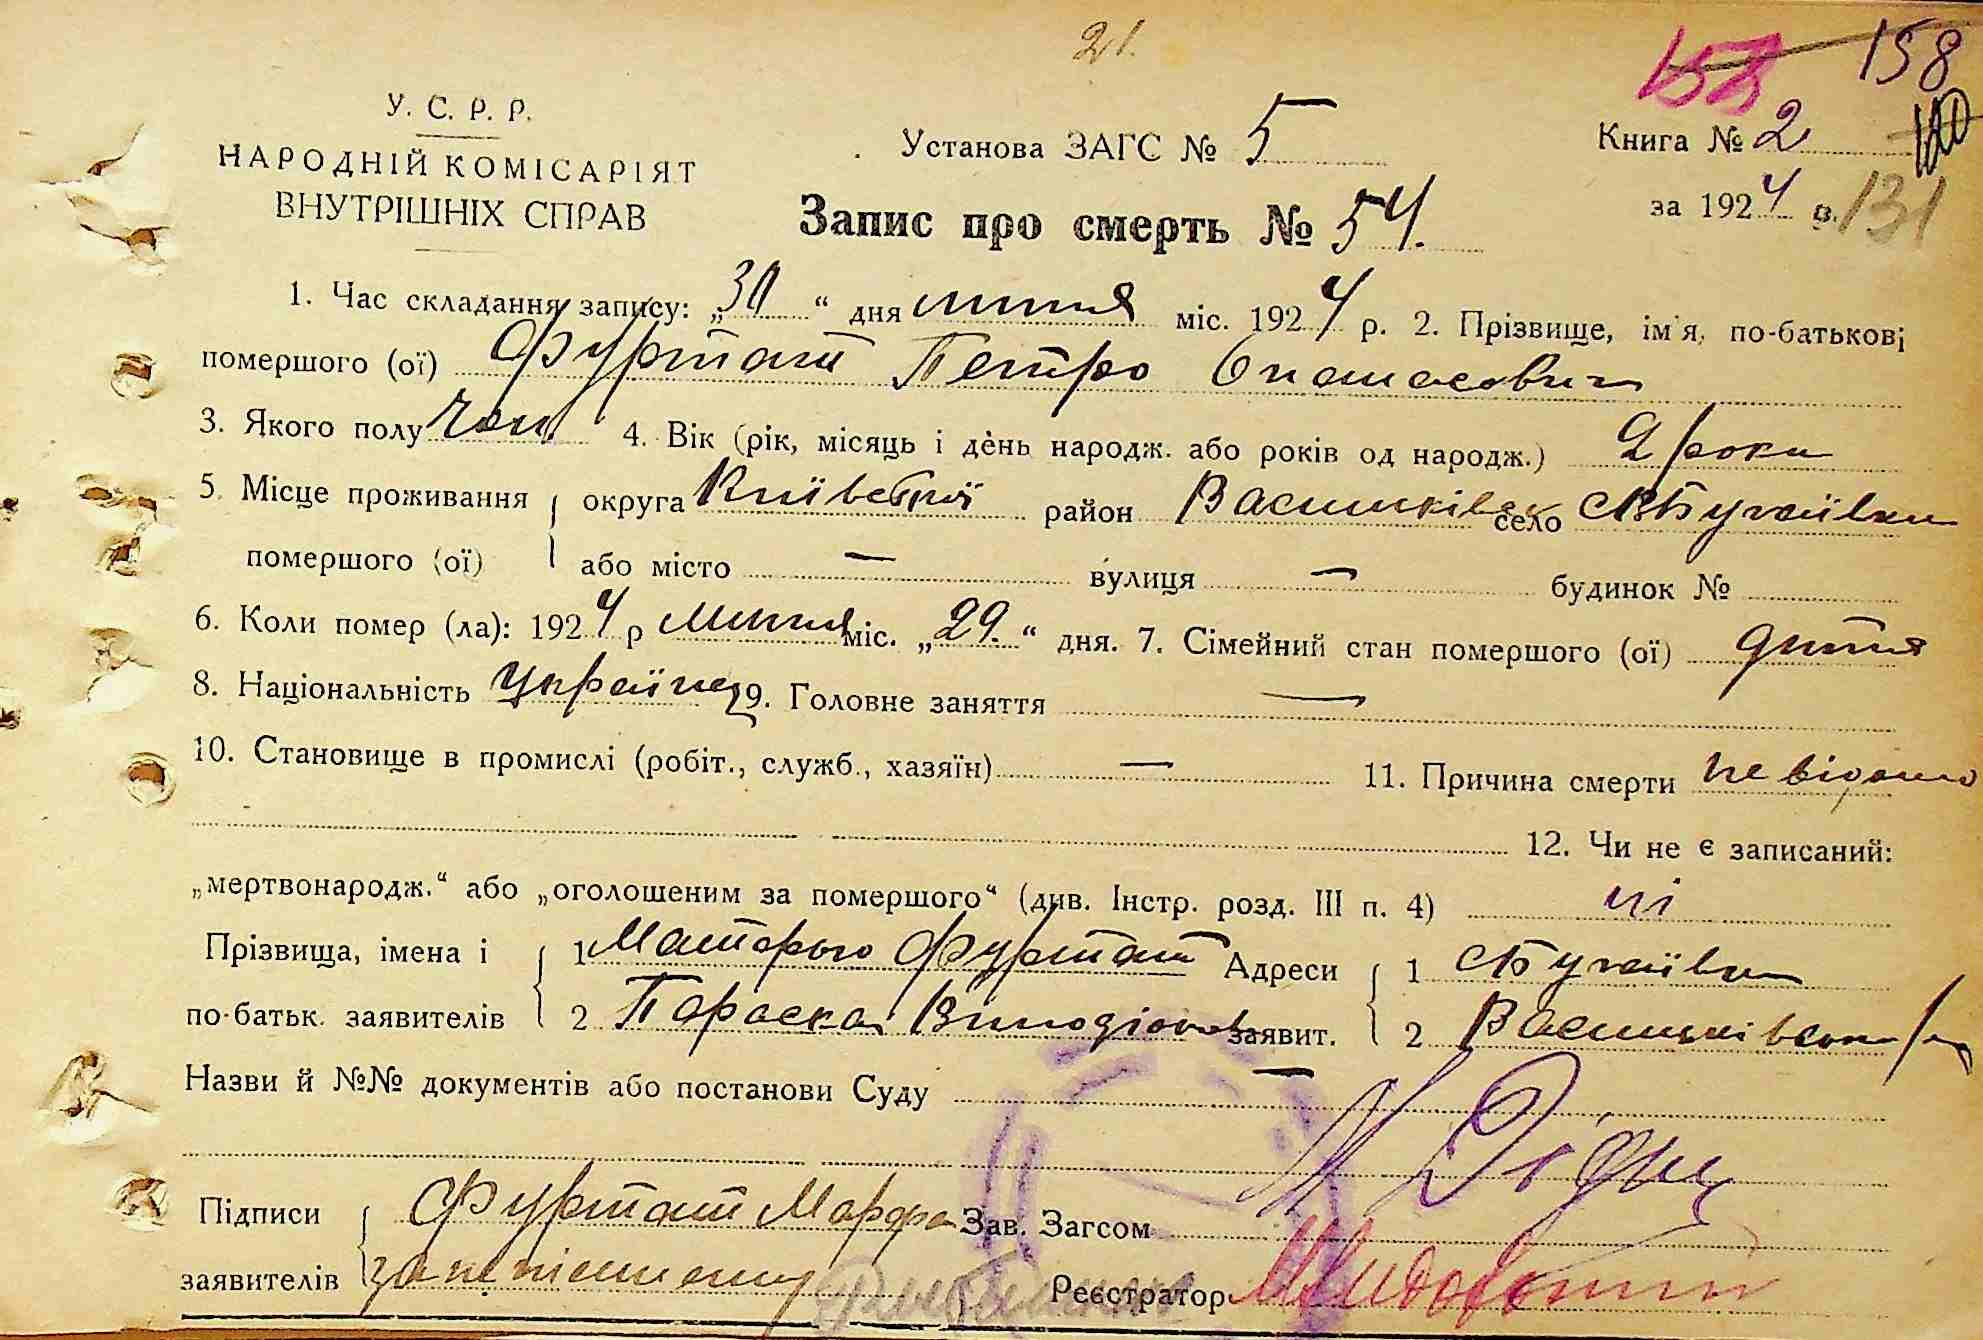 21.
158 158
У. С. Р. Р.
НАРОДНІЙ КОМІСАРІЯТ
ВНУТРІШНІХ СПРАВ
Установа ЗАГС № 5
Книга № 2
за 1924 р. 131
Запис про смерть № 54.
1. Час складання запису: „30“ дня липня міс. 1924 р. 2. Прізвище, ім'я, по-батькові
помершого (ої) Фуртат Петро Опанасович
3. Якого полу чол. 4. Вік (рік, місяць і день народж. або років од народж.) 2 роки
5. Місце проживання округа Київської район Васильківськ село Бугаївки
помершого (ої) або місто — вулиця — будинок №
6. Коли помер (ла): 1924 р липня міс. „29.“ дня. 7. Сімейний стан помершого (ої) дитя
8. Національність Українец 9. Головне заняття —
10. Становище в промислі (робіт., служб., хазяїн) — 11. Причина смерти невідомо
12. Чи не є записаний:
„мертвонародж.“ або „оголошеним за помершого“ (див. Інстр. розд. III п. 4) ні
Прізвища, імена і 1 Фуртат Адреси 1 Бугаївки
по-батьк. заявителів 2 Параска заявит. 2 Васильківськ
Назви й №№ документів або постанови Суду —
Підписи Фуртат Марфа Зав. Загсом
заявителів за неписьменну Реєстратор